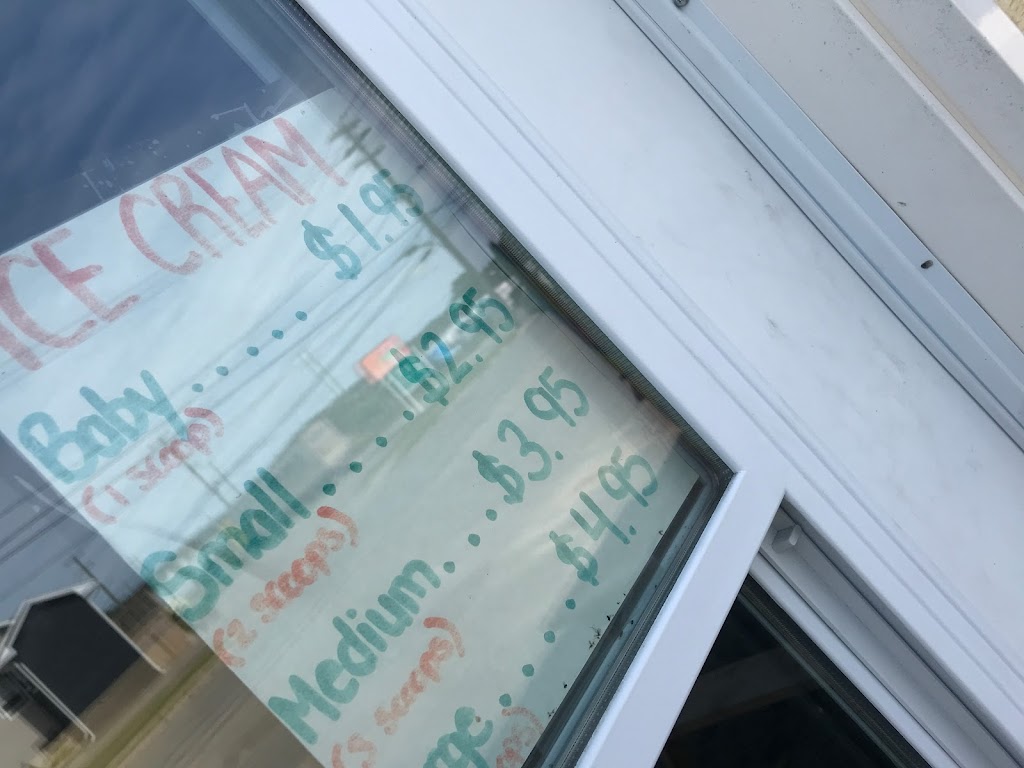 ICE CREAM
Baby...... $1.95
(1 scoop)
Small..... $2.95
(2 scoops)
Medium.... $3.95
(3 scoops)
rge..... $4.95
ops)